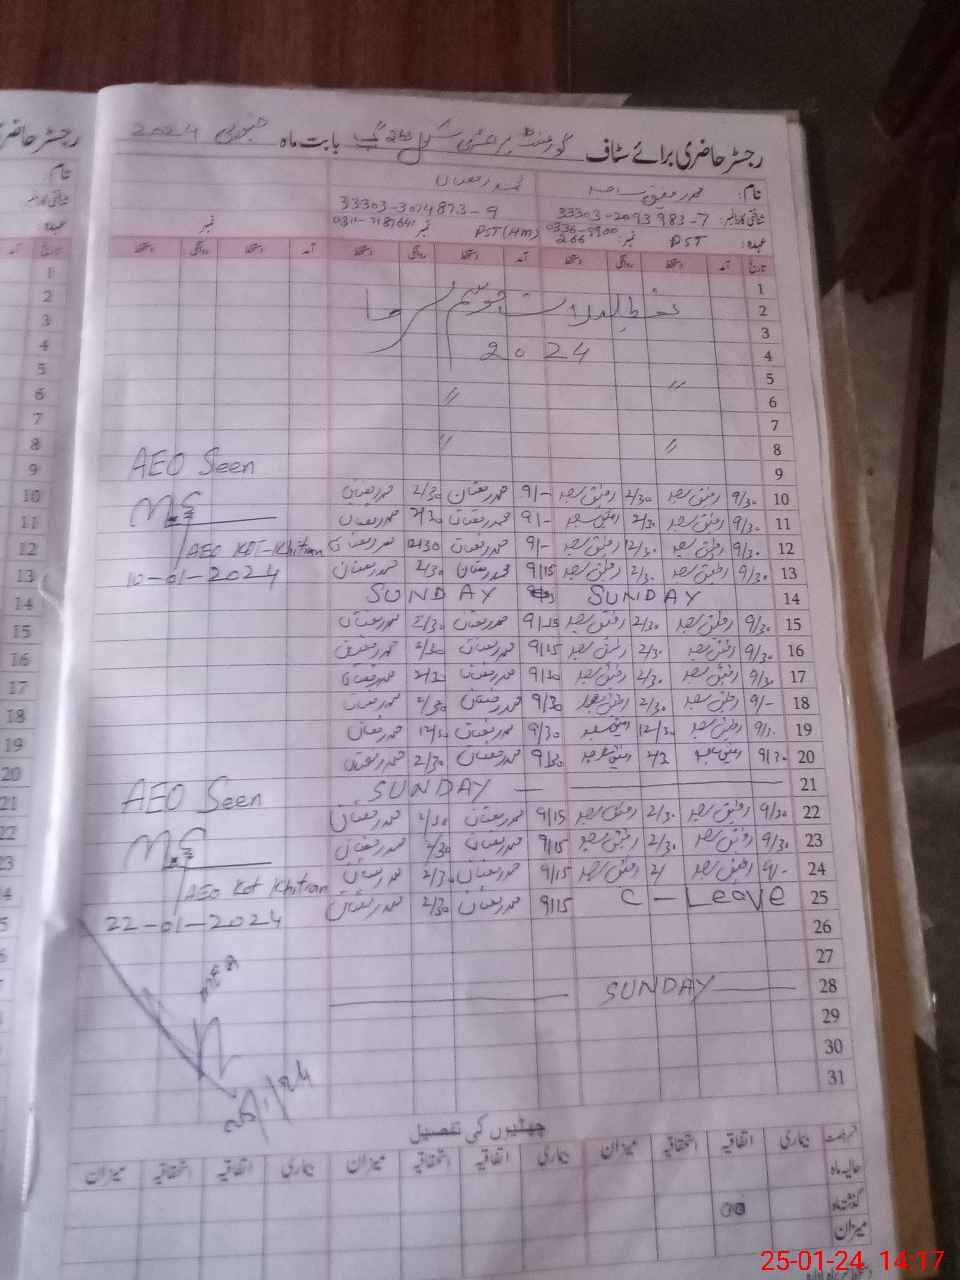 رجسٹر حاضری برائے سٹاف گورنمنٹ پرائمری سکول 266 گ ب بابت ماہ جنوری 2024
نام: محمد رفیق ساجد محمد رمضان
شناختی کارڈ نمبر: 33303-2093983-7 33303-3074873-9
عہدہ: PST نمبر: PST (Hm) نمبر 0311-7187641 نمبر
تاریخ آمد دستخط روانگی دستخط آمد دستخط روانگی دستخط آمد دستخط روانگی دستخط
1
2 تعطیلات موسم سرما
3
4 2024
5 〃
6 〃
7
8 〃 〃
9
AEO Seen
10 9/30 رفیق ساجد 2/30 رفیق ساجد 9/- محمد رمضان 2/30 محمد رمضان
11 9/30 رفیق ساجد 2/30 رفیق ساجد 9/- محمد رمضان 2/30 محمد رمضان
12 9/30 رفیق ساجد 12/30 رفیق ساجد 9/- محمد رمضان 12/30 محمد رمضان
AEO Kot-Khitran
13 9/30 رفیق ساجد 2/30 رفیق ساجد 9/15 محمد رمضان 2/30 محمد رمضان
10-01-2024
14 SUNDAY SUNDAY
15 9/30 رفیق ساجد 2/30 رفیق ساجد 9/15 محمد رمضان 2/30 محمد رمضان
16 9/30 رفیق ساجد 2/30 رفیق ساجد 9/15 محمد رمضان 2/30 محمد رمضان
17 9/30 رفیق ساجد 2/30 رفیق ساجد 9/30 محمد رمضان 2/30 محمد رمضان
18 9/- رفیق ساجد 2/30 رفیق ساجد 9/30 محمد رمضان 2/30 محمد رمضان
19 9/30 رفیق ساجد 12/30 رفیق ساجد 9/30 محمد رمضان 12/30 محمد رمضان
20 9/30 رفیق ساجد رفیق ساجد 9/30 محمد رمضان 2/30 محمد رمضان
21 SUNDAY
AEO Seen
22 9/30 رفیق ساجد 2/30 رفیق ساجد 9/15 محمد رمضان 2/30 محمد رمضان
23 9/30 رفیق ساجد 2/30 رفیق ساجد 9/15 محمد رمضان 2/30 محمد رمضان
24 9/- رفیق ساجد 2/ رفیق ساجد 9/15 محمد رمضان 2/30 محمد رمضان
AEO Kot Khitran
25 C-Leave 9/15 محمد رمضان 2/30 محمد رمضان
22-01-2024
26
27
28 SUNDAY
29
30
31
25/1/24
چھٹیوں کی تفصیل
رخصت بیماری اتفاقیہ استحقاقیہ میزان بیماری اتفاقیہ استحقاقیہ میزان بیماری اتفاقیہ استحقاقیہ میزان
حالیہ ماہ
گذشتہ ماہ 00
میزان
رجسٹر حاضری
نام:
عہدہ:
تاریخ
1
2
3
4
5
6
7
8
9
10
11
12
13
14
15
16
17
18
19
20
21
22
23
25-01-24 14:17